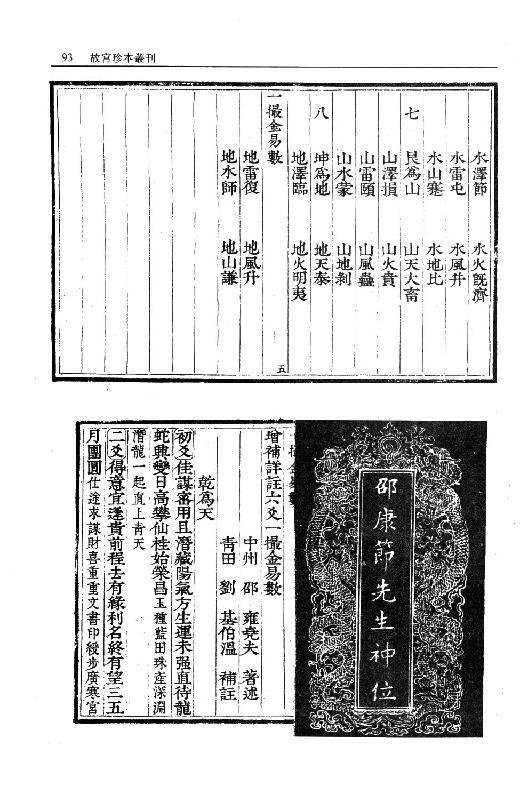 93 故宮珍本叢刊
水澤節 水火旣濟
水雷屯 水風井
水山蹇 水地比
七 艮爲山 山天大畜
山澤損 山火賁
山雷頤 山風蠱
山水蒙 山地剝
八 坤爲地 地天泰
地澤臨 地火明夷
一撮金易數 五
地雷復 地風升
地水師 地山謙
邵康節先生神位
一撮金易數
增補詳註六爻一撮金易數
中州 邵 雍堯夫 著述
青田 劉 基伯溫 補註
乾爲天
初爻佳謀審用且潛藏陽氣方生運未强直待龍
蛇興變日高攀仙桂始榮昌玉種藍田珠產深淵
潛龍一起直上青天
二爻得意宜逢貴前程去有緣利名終有望三五
月團圓仕途求謀財喜重重文書印綬步廣寒宮